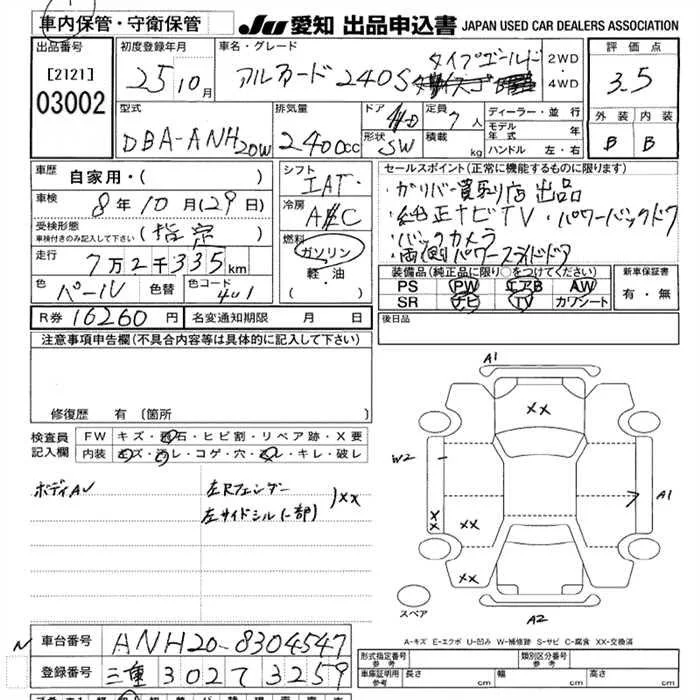 車内保管・守衛保管
JU 愛知 出品申込書 JAPAN USED CAR DEALERS ASSOCIATION
出品番号
[2121]
03002
初度登録年月
25年10月
車名・グレード
アルファード 240S
タイプゴールド
2WD
・
4WD
評価点
3.5
外装 内装
B B
型式
DBA-ANH20W
排気量
2400cc
ドア
形状
SW
定員
7人
積載
kg
ディーラー・並行
モデル
年式 年
ハンドル 左・右
車歴
自家用・( )
車検
8年10月(29日)
受検形態
車検付きのみ記入して下さい
(指定)
走行
7万2千335km
色
パール
色替
色コード
4u1
シフト
IAT
冷房
A/C
燃料
ガソリン
・
軽・油
( )
セールスポイント(正常に機能するものに限ります)
・ガリバー買取り店出品
・純正ナビTV・パワーバックドア
・バックカメラ
・両側パワースライドドア
装備品(純正品に限り○をつけてください)
PS PW エアB AW
SR ナビ TV カワシート
新車保証書
有・無
後日品
R券 16260円
名変通知期限 月 日
注意事項申告欄(不具合内容等は具体的に記入して下さい)
修復歴 有 〔箇所
検査員
記入欄
FW キズ・飛石・ヒビ割・リペア跡・X要
内装 キズ・汚レ・コゲ・穴・スレ・キレ・破レ
ボディAU
左Rフェンダー
左サイドシル(一部)
)XX
A1
XX
W2
A1
XX
XX
XX
A2
スペア
A-キズ E-エクボ U-凹み W-補修跡 S-サビ C-腐食 XX-交換済
N
車台番号 ANH20-8304547
登録番号 三重 302 す 3259
形式指定番号
参考
類別区分番号
参考
車庫証明用
参考
長さ cm
幅 cm
高さ cm